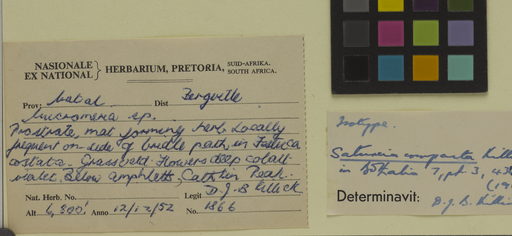 NASIONALE
EX NATIONAL } HERBARIUM, PRETORIA, SUID-AFRIKA.
SOUTH AFRICA.
Prov: Natal Dist Bergville
Micromeria sp.
Prostrate, mat forming herb locally
frequent on side of bridle path, in Festuca
costata Grassveld. Flowers deep cobalt
violet. Below Amphlett, Cathkin Peak.
Nat. Herb. No. Legit D.J.B Killick
Alt 6,800' Anno 12/12/52 No. 1866
Isotype.
Satureia compacta Killick
in Bothalia 7, pt 3, 43
(19
Determinavit: D.J.B. Killi